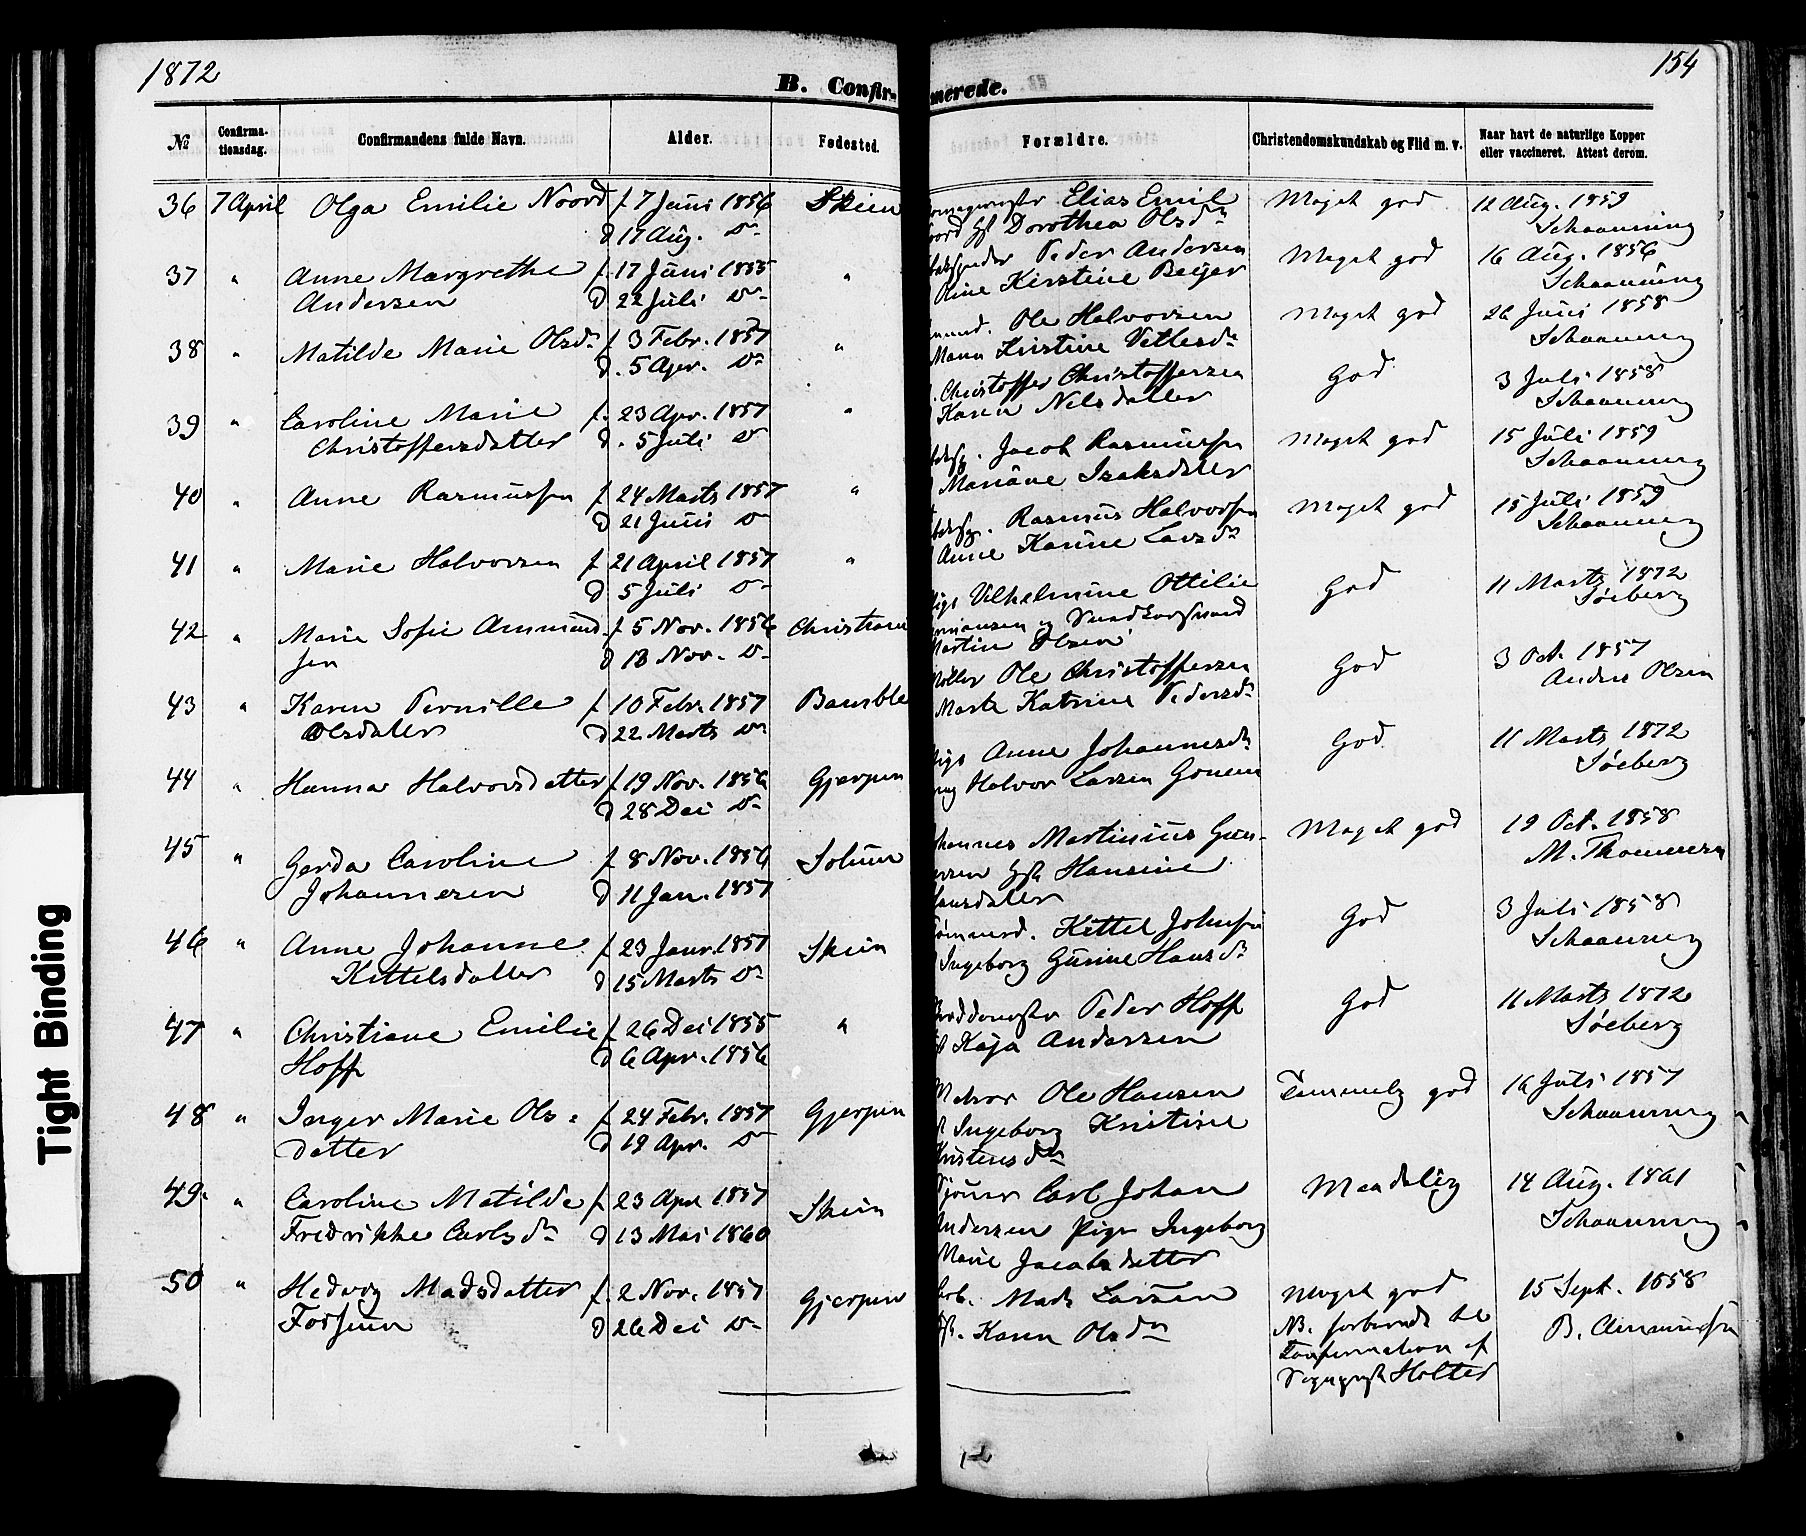 1872
154
B. Confir-
merede.
№
Confirma-
tionsdag.
Confirmandens fulde Navn.
Alder.
Fødested.
Forældre.
Christendomskundskab og Flid m. v.
Naar havt de naturlige Kopper
eller vaccineret. Attest derom.
36 7 April Olga Emilie Noord f 7 Juni 1856 Skien
d 17 Aug. D°
Elias Emil
Dorothea Olsd Meget god 12 Aug. 1859
Schaanning
37 " Anne Margrethe f. 17 Juni 1855 "
Andersen d 22 Juli D°
Peder Andersen Meget god 16 Aug. 1856
Oline Kirstine Beyer Schaanning
38 " Matilde Marie Olsd f 3 Febr. 1857 "
d. 5 Apr. D°
Ole Halvorsen Meget god 26 Juni 1858
Kristine Vetlesd Schaanning
39 " Caroline Marie f. 23 Apr. 1857 "
Christoffersdatter d. 5 Juli D°
Christoffer Christoffersen God 3 Juli 1858
Karen Nilsdatter Schaanning
40 " Anne Rasmussen f 24 Marts 1857 "
d 21 Juni D°
Jacob Rasmussen Meget god 15 Juli 1859
Mariane Isaksdatter Schaanning
41 " Marie Halvorsen f 21 April 1857 "
d 5 Juli D°
Rasmus Halvorsen Meget god 15 Juli 1859
Anne Karine Larsd Schaanning
42 " Marie Sofie Ammund- f 5 Nov. 1856 Christiania
sen d 13 Nov. D°
Vilhelmine Ottilie God 11 Marts 1872
og Søeberg
Martin Olsen
43 " Karen Pernille f 10 Febr. 1857 Bamble
Olsdatter d 22 Marts D°
Møller Ole Christoffersen God 3 Oct. 1857
Marte Katrine Pedersd Anders Olsen
44 " Hanna Halvorsdatter f 19 Nov. 1856 Gjerpen
d 28 Dec D°
Anne Johannesd God 11 Marts 1872
Halvor Larsen Søeberg
45 " Gerda Caroline f 8 Nov. 1856 Solum
Johannesen d 11 Jan. 1857
Johannes Martinius Meget god 19 Oct. 1858
Hansine M. Thommesen
Hansdatter
46 " Anne Johanne f 23 Janr. 1857 Skien
Kittelsdatter d 15 Marts D°
Tømmerd. Kittel Johnsen God 3 Juli 1858
Ingeborg Gurine Hansd Schaanning
47 " Christiane Emilie f 26 Dec 1855 "
Hoff d 6 Apr. 1856
Peder Hoff God 11 Marts 1872
Kaja Andersen Søeberg
48 " Inger Marie Ols- f 24 Febr. 1857 Gjerpen
datter d 19 Apr. D°
Ole Hansen Temmelig god 16 Juli 1857
Ingeborg Kristine Schaanning
Kristensd
49. " Caroline Matilde f 23 Apr 1857 Skien
Fredrikke Carlsd d 13 Mai 1860
Carl Johan Maadelig 14 Aug. 1861
Andersen Pige Ingeborg Schaanning
Marie Jacobsdatter
50 " Hedvig Madsdatter f. 2 Nov. 1857 Gjerpen
Fossum d 26 Dec D°
Arb. Mads Larsen Meget god 15 Sept. 1858
Karen Olsd NB. forberedt til B. Ammundsen
Confirmation af
Sogneprest Holter
Tight Binding